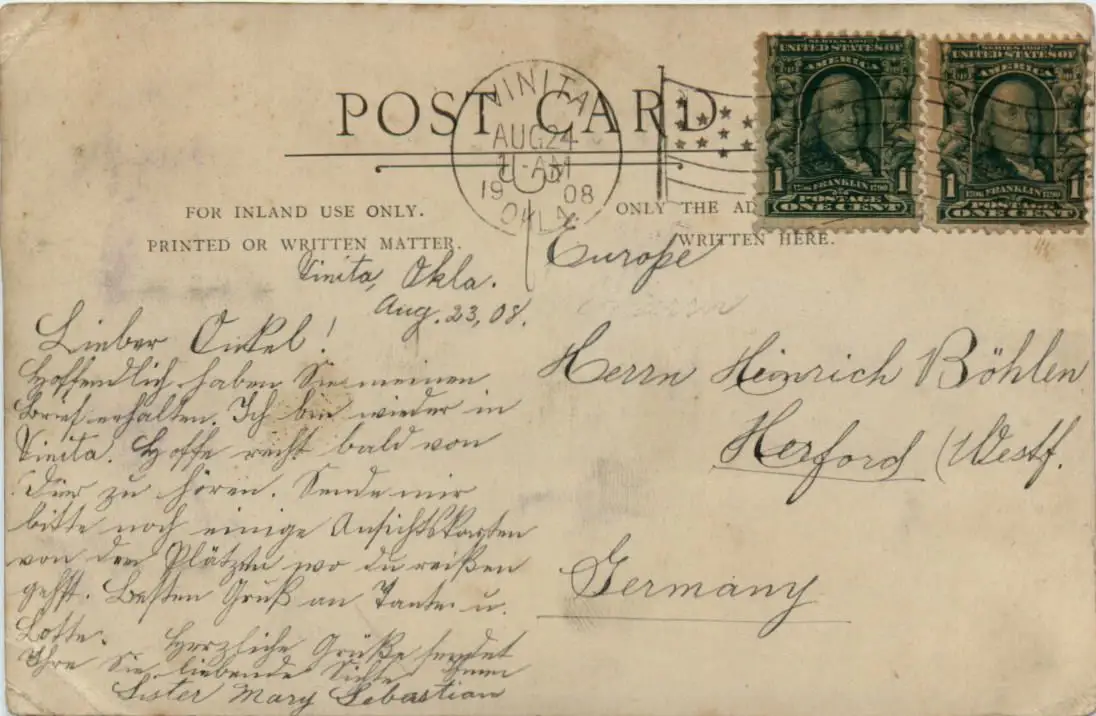 POST CARD
VINITA
AUG 24
-AM
19 08
OKLA.
SERIES 1902
UNITED STATES OF
AMERICA
1 1706 FRANKLIN 1790 1
POSTAGE
ONE CENT
SERIES 1902
UNITED STATES OF
AMERICA
1 1706 FRANKLIN 1790 1
POSTAGE
ONE CENT
FOR INLAND USE ONLY.
PRINTED OR WRITTEN MATTER.
ONLY THE AD
WRITTEN HERE.
Vinita, Okla.
Aug. 23, 08.
Lieber Onkel!
Hoffendlich haben Sie meinen
Brief erhalten. Ich bin wieder in
Vinita. Hoffe recht bald von
zu hören. Sende mir
bitte noch einige Ansichtskarten
von den Plätzen wo du
gehst. Besten Gruß an Tante u.
Lotte. Herzliche Grüße sendet
Ihre Sie liebende
Sister Mary Sebastian
Europe
Herrn Heinrich Böhlen
Herford (Westf.
Germany